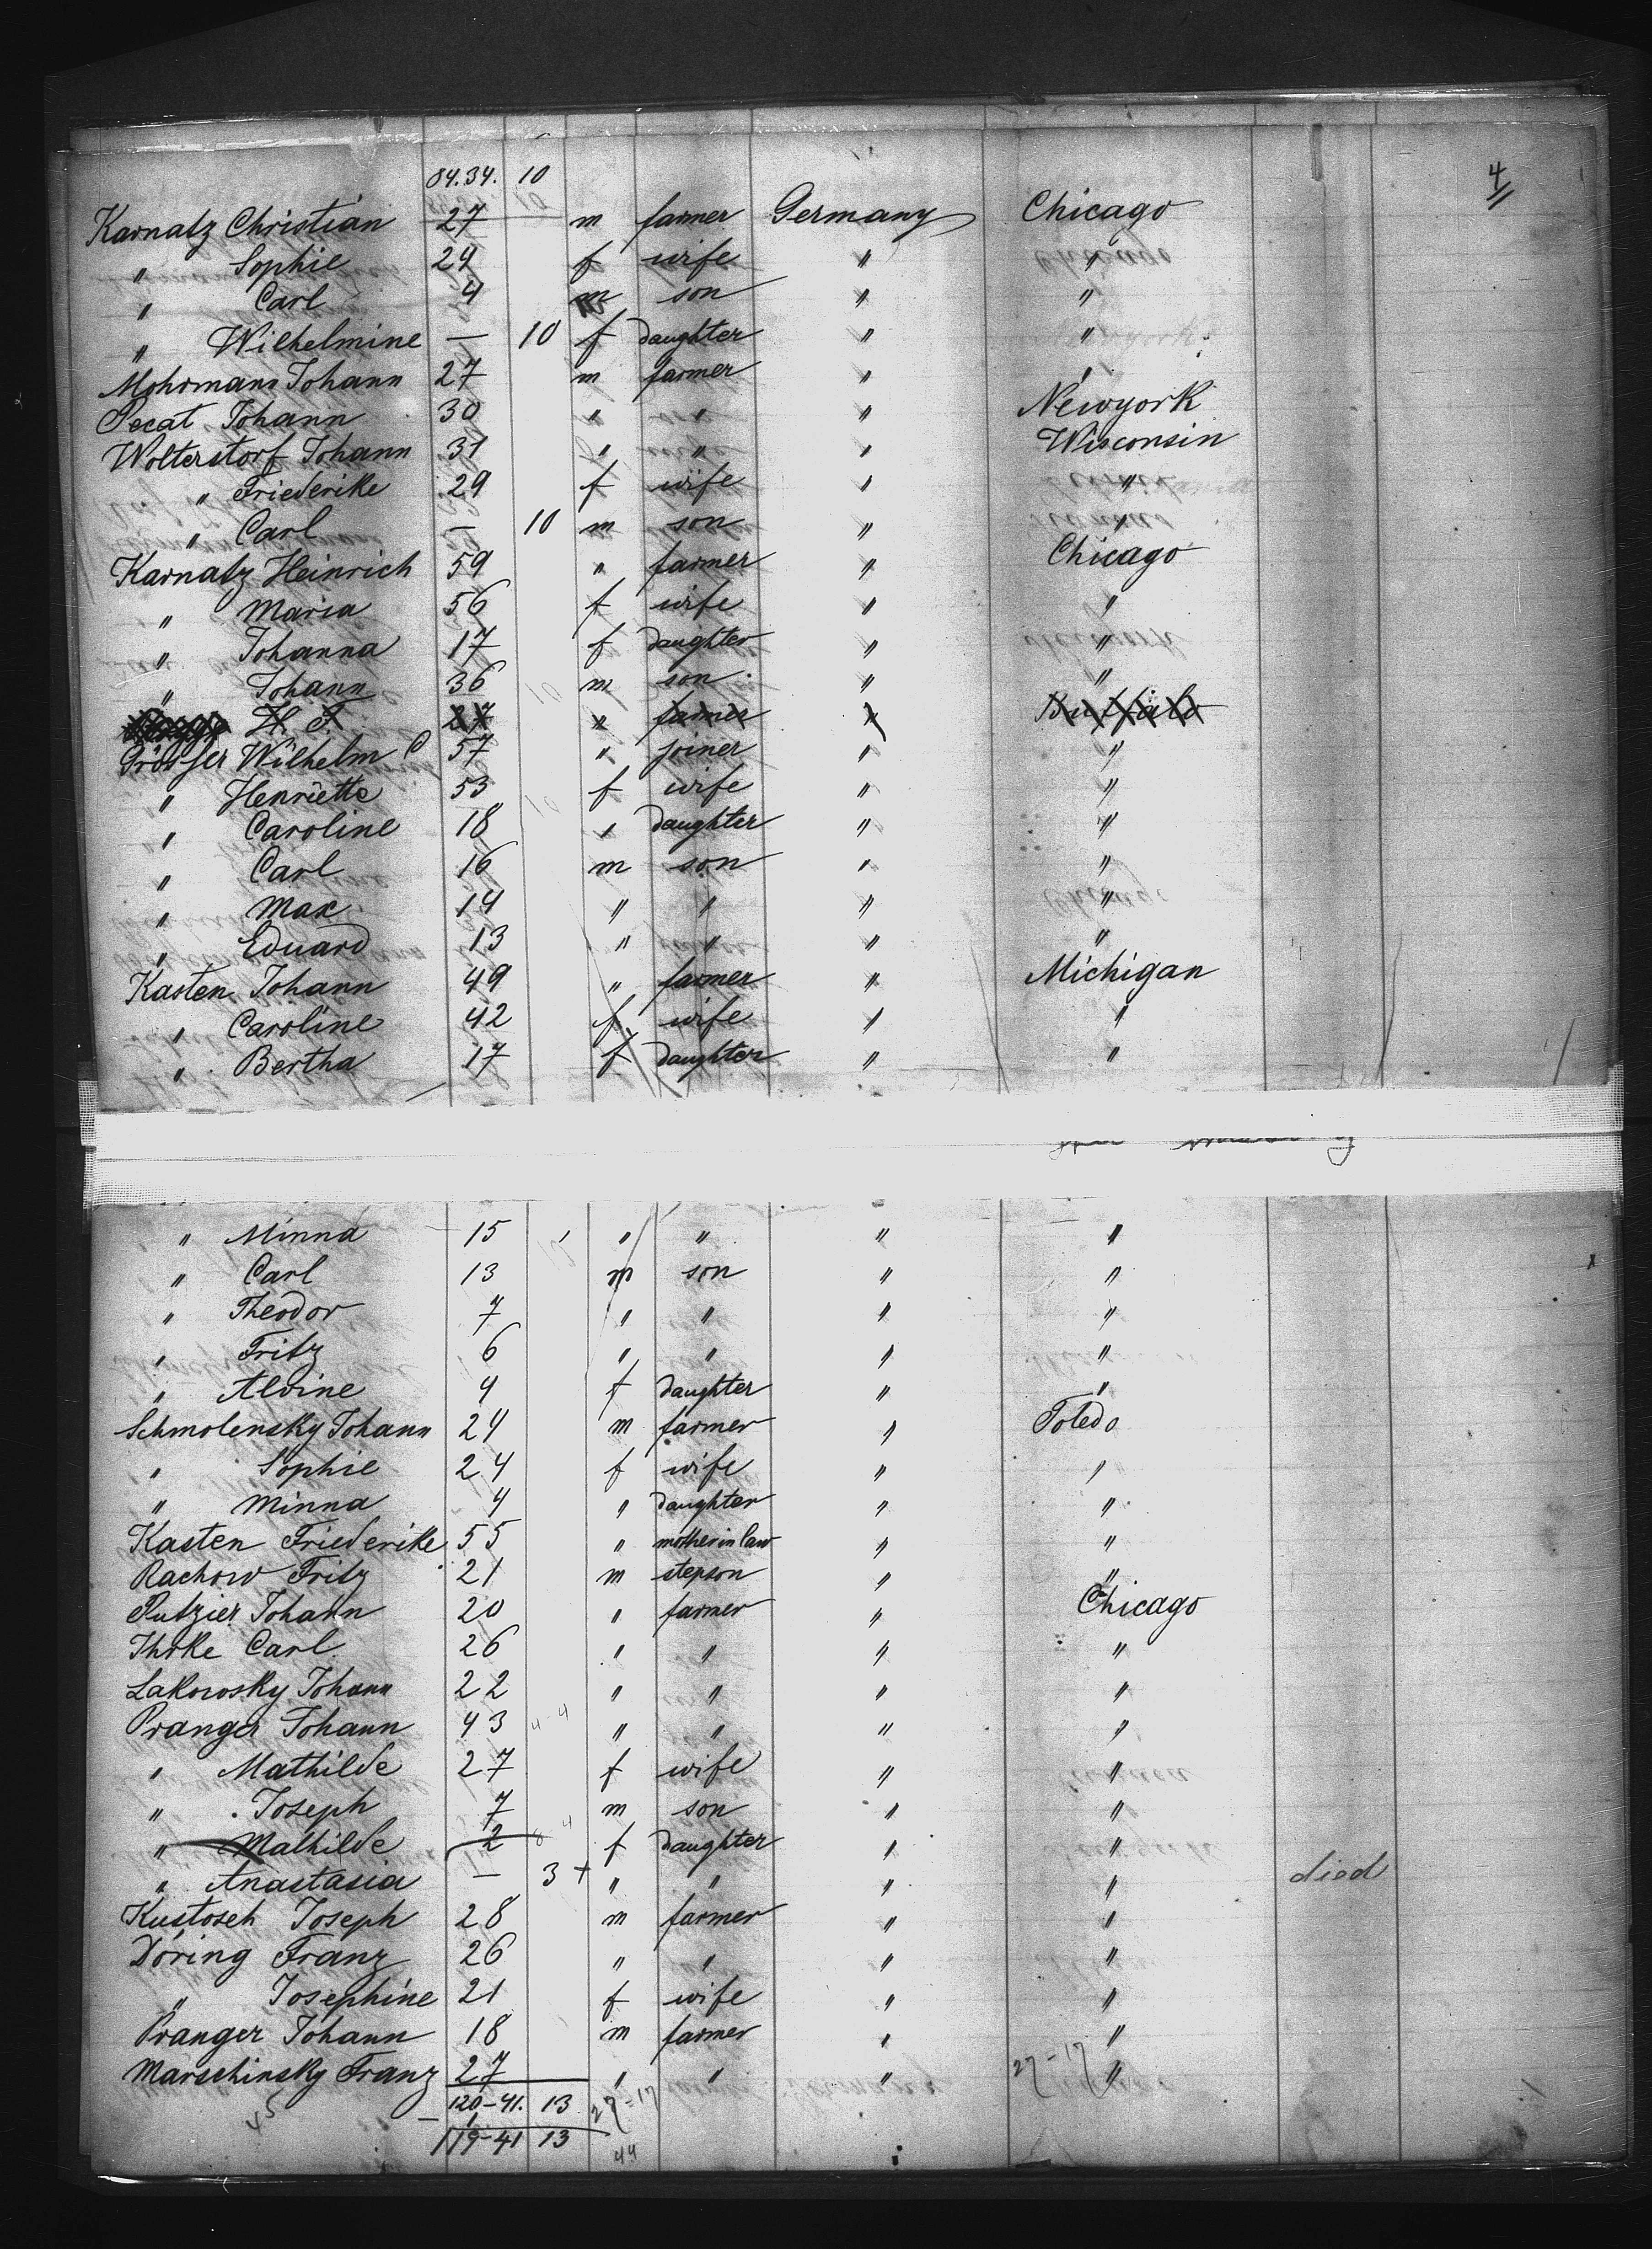 84.34. 10
4
Karnatz Christian 27 m farmer Germany Chicago
" Sophie 29 f wife " "
" Carl 4 m son " "
" Wilhelmine — 10 f daughter " "
Mohrmann Johann 27 m farmer " "
Pecat Johann 30 " " " Newyork
Wolterstorf Johann 31 " " " Wisconsin
" Friederike 29 f wife " "
" Carl — 10 m son " "
Karnatz Heinrich 59 " farmer " Chicago
" Maria 56 f wife " "
" Johanna 17 f daughter " "
" Johann 36 m son " "
H. F. 27 " farmer " Buffalo
Grösser Wilhelm C 57 " joiner " "
" Henriette 53 f wife " "
" Caroline 18 " daughter " "
" Carl 16 m son " "
" Max 14 " " " "
" Eduard 13 " " " "
Kasten Johann 49 " farmer " Michigan
" Caroline 42 f wife " "
" Bertha 17 f daughter " "
" Minna 15 " " " "
" Carl 13 m son " "
" Theodor 7 " " " "
" Fritz 6 " " " "
" Alvine 4 f daughter " "
Schmolensky Johann 24 m farmer " Toledo
" Sophie 24 f wife " "
" Minna 4 " daughter " "
Kasten Friederike 55 " mother in law " "
Rachow Fritz 21 m stepson " "
Putzier Johann 20 " farmer " Chicago
Thoke Carl 26 " " " "
Lakowsky Johann 22 " " " "
Pranger Johann 43 " " " "
" Mathilde 27 f wife " "
" Joseph 7 m son " "
" Mathilde 2 f daughter " "
" Anastasia — 3 + " " " " died
Kustosch Joseph 28 m farmer " "
Döring Franz 26 " " " "
" Josephine 21 f wife " "
Pranger Johann 18 m farmer " "
Marschinsky Franz 27 " " " 27-17 "
45 120-41. 13 27-17
— 1
119-41 13
44